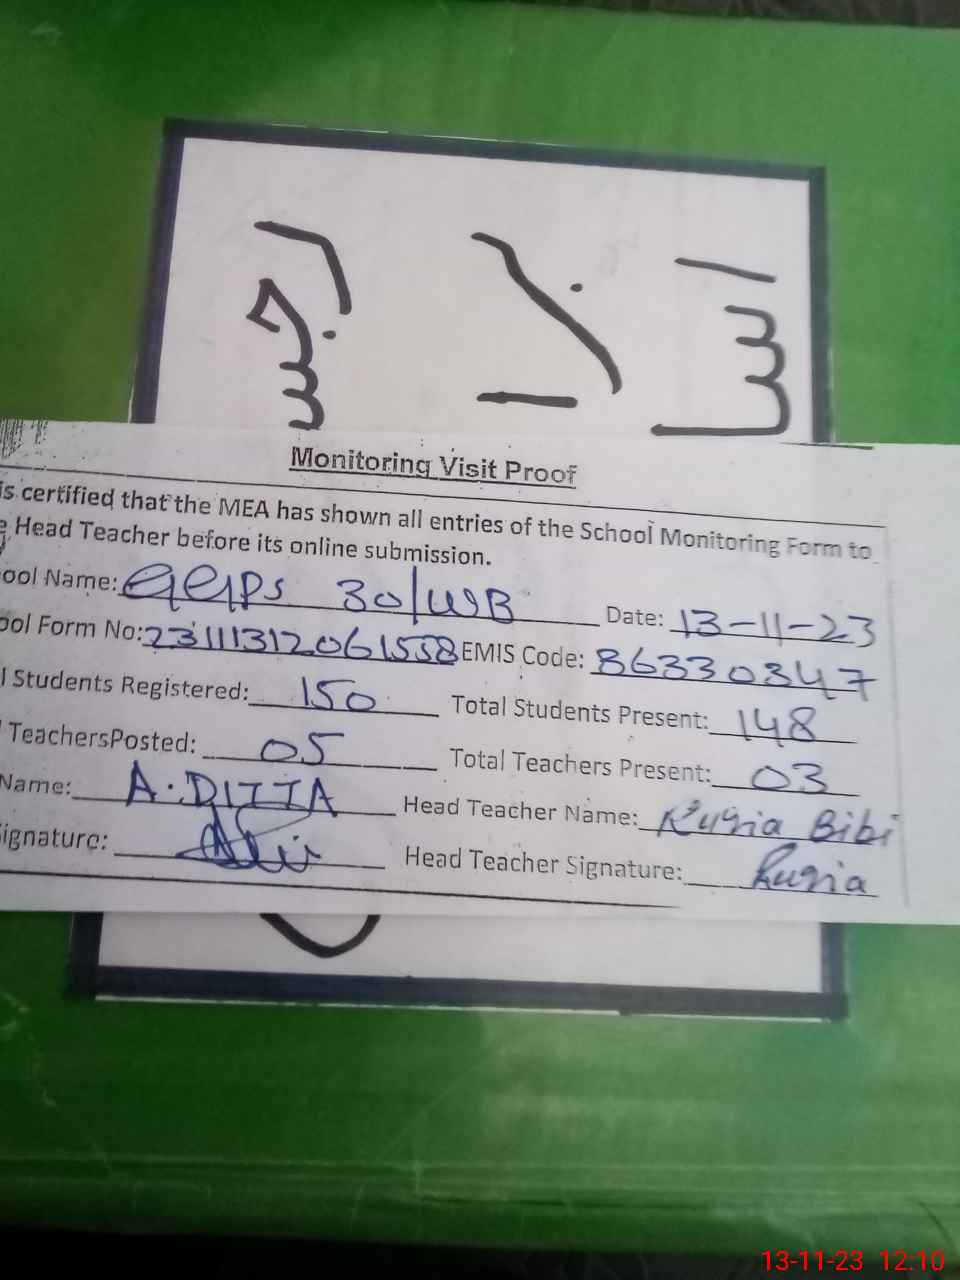 Monitoring Visit Proof
is certified that the MEA has shown all entries of the School Monitoring Form to
Head Teacher before its online submission.
ool Name: GGPS 30/WB Date: 13-11-23
ool Form No: 23111312061558 EMIS Code: 86330347
l Students Registered: 150 Total Students Present: 148
TeachersPosted: 05 Total Teachers Present: 03
Name: A. DITTA Head Teacher Name: Ruqia Bibi
ignature: Head Teacher Signature: Ruqia
13-11-23 12:10